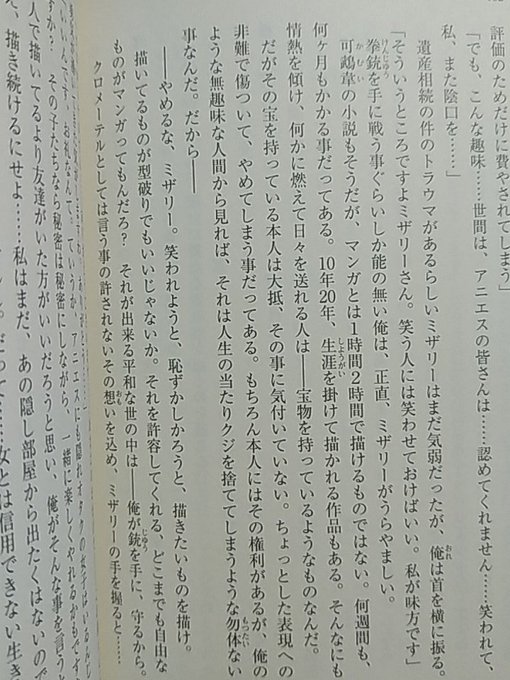 評価のためだけに費やされてしまう」
「でも、こんな趣味……世間は、アニエスの皆さんは……認めてくれません……笑われて、
私、また陰口を……」
遺産相続の件のトラウマがあるらしいミザリーはまだ気弱だったが、俺は首を横に振る。
「そういうところですよミザリーさん。笑う人には笑わせておけばいい。私が味方です」
拳銃を手に戦う事ぐらいしか能の無い俺は、正直、ミザリーがうらやましい。
可鵡韋の小説もそうだが、マンガとは1時間2時間で描けるものではない。何週間も、
何ヶ月もかかる事だってある。10年20年、生涯を掛けて描かれる作品もある。そんなにも
情熱を傾け、何かに燃えて日々を送れる人は――宝物を持っているようなものなんだ。
だがその宝を持っている本人は大抵、その事に気付いていない。ちょっとした表現への
非難で傷ついて、やめてしまう事だってある。もちろん本人にはその権利があるが、俺の
ような無趣味な人間から見れば、それは人生の当たりクジを捨ててしまうような勿体ない
事なんだ。だから――
――やめるな、ミザリー。笑われようと、恥ずかしかろうと、描きたいものを描け。
描いてるものが型破りでもいいじゃないか。それを許容してくれる、どこまでも自由な
ものがマンガってもんだろ？　それが出来る平和な世の中は――俺が銃を手に、守るから。
クロメーテルとしては言う事の許されないその想いを込め、ミザリーの手を握ると……
すか？　その子たちなら秘密は秘密にしながら、一緒に楽しくやれるかもです
人で描いてるより友達がいた方がいいだろうと思い、俺がそんな事を言うと
、描き続けるにせよ……私はまだ、あの隠し部屋から出たくはないので
女とは信用できない生き